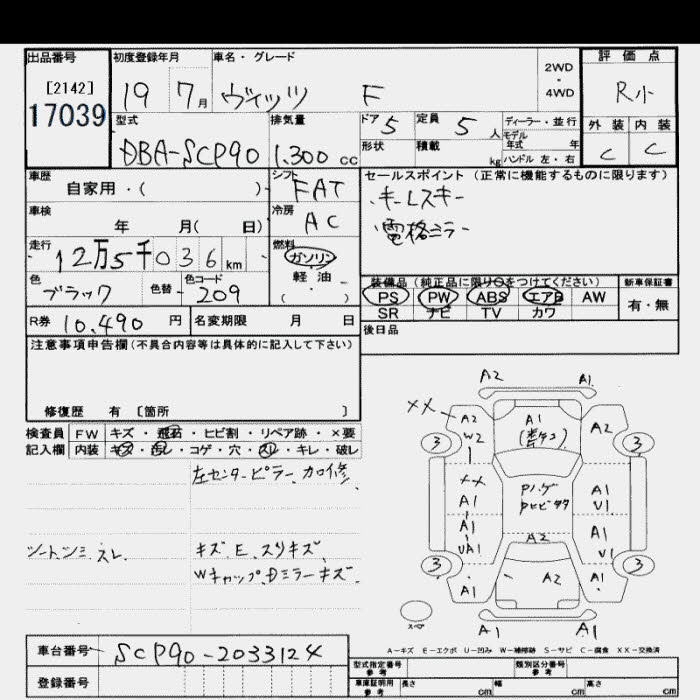 出品番号 初度登録年月 車名・グレード 評価点
[2142] 19 7月 ヴィッツ F 2WD・4WD R小
17039 型式 排気量 ドア 5 定員 5人 ディーラー・並行 外装 内装
モデル年式 年
DBA-SCP90 1.300cc 形状 積載 kg ハンドル 左・右 C C
車歴 シフト セールスポイント(正常に機能するものに限ります)
自家用・( ) FAT キーレスキー
車検 冷房 電格ミラー
年 月( 日) AC
走行 燃料
12万5千036km ガソリン
軽・油
( )
色 色替 色コード 装備品(純正品に限り○をつけてください) 新車保証書
ブラック 209 PS PW ABS エアB AW 有・無
SR ナビ TV カワ
R券 10,490円 名変期限 月 日 後日品
注意事項申告欄(不具合内容等は具体的に記入して下さい)
修復歴 有 [箇所 ]
検査員 FW キズ・飛石・ヒビ割・リペア跡・×要
記入欄 内装 キズ・汚レ・コゲ・穴・スレ・キレ・破レ
左センターピラー、加修、
シートシミ、スレ キズ、E、スリキズ、
Wキャップ、Dミラーキズ、
A2 A1
XX A2 A1 A2
W2
3 3
XX
A1 A1
U1
A1 A1
UA1 U1
A2
3 3
A1 A2 A1
スペア A1 A1
A-キズ E-エクボ U-凹み W-補修跡 S-サビ C-腐食 XX-交換済
車台番号 SCP90-2033124 型式指定番号 参考 類別区分番号 参考
登録番号 車庫証明用 参考 長さ cm 幅 cm 高さ cm